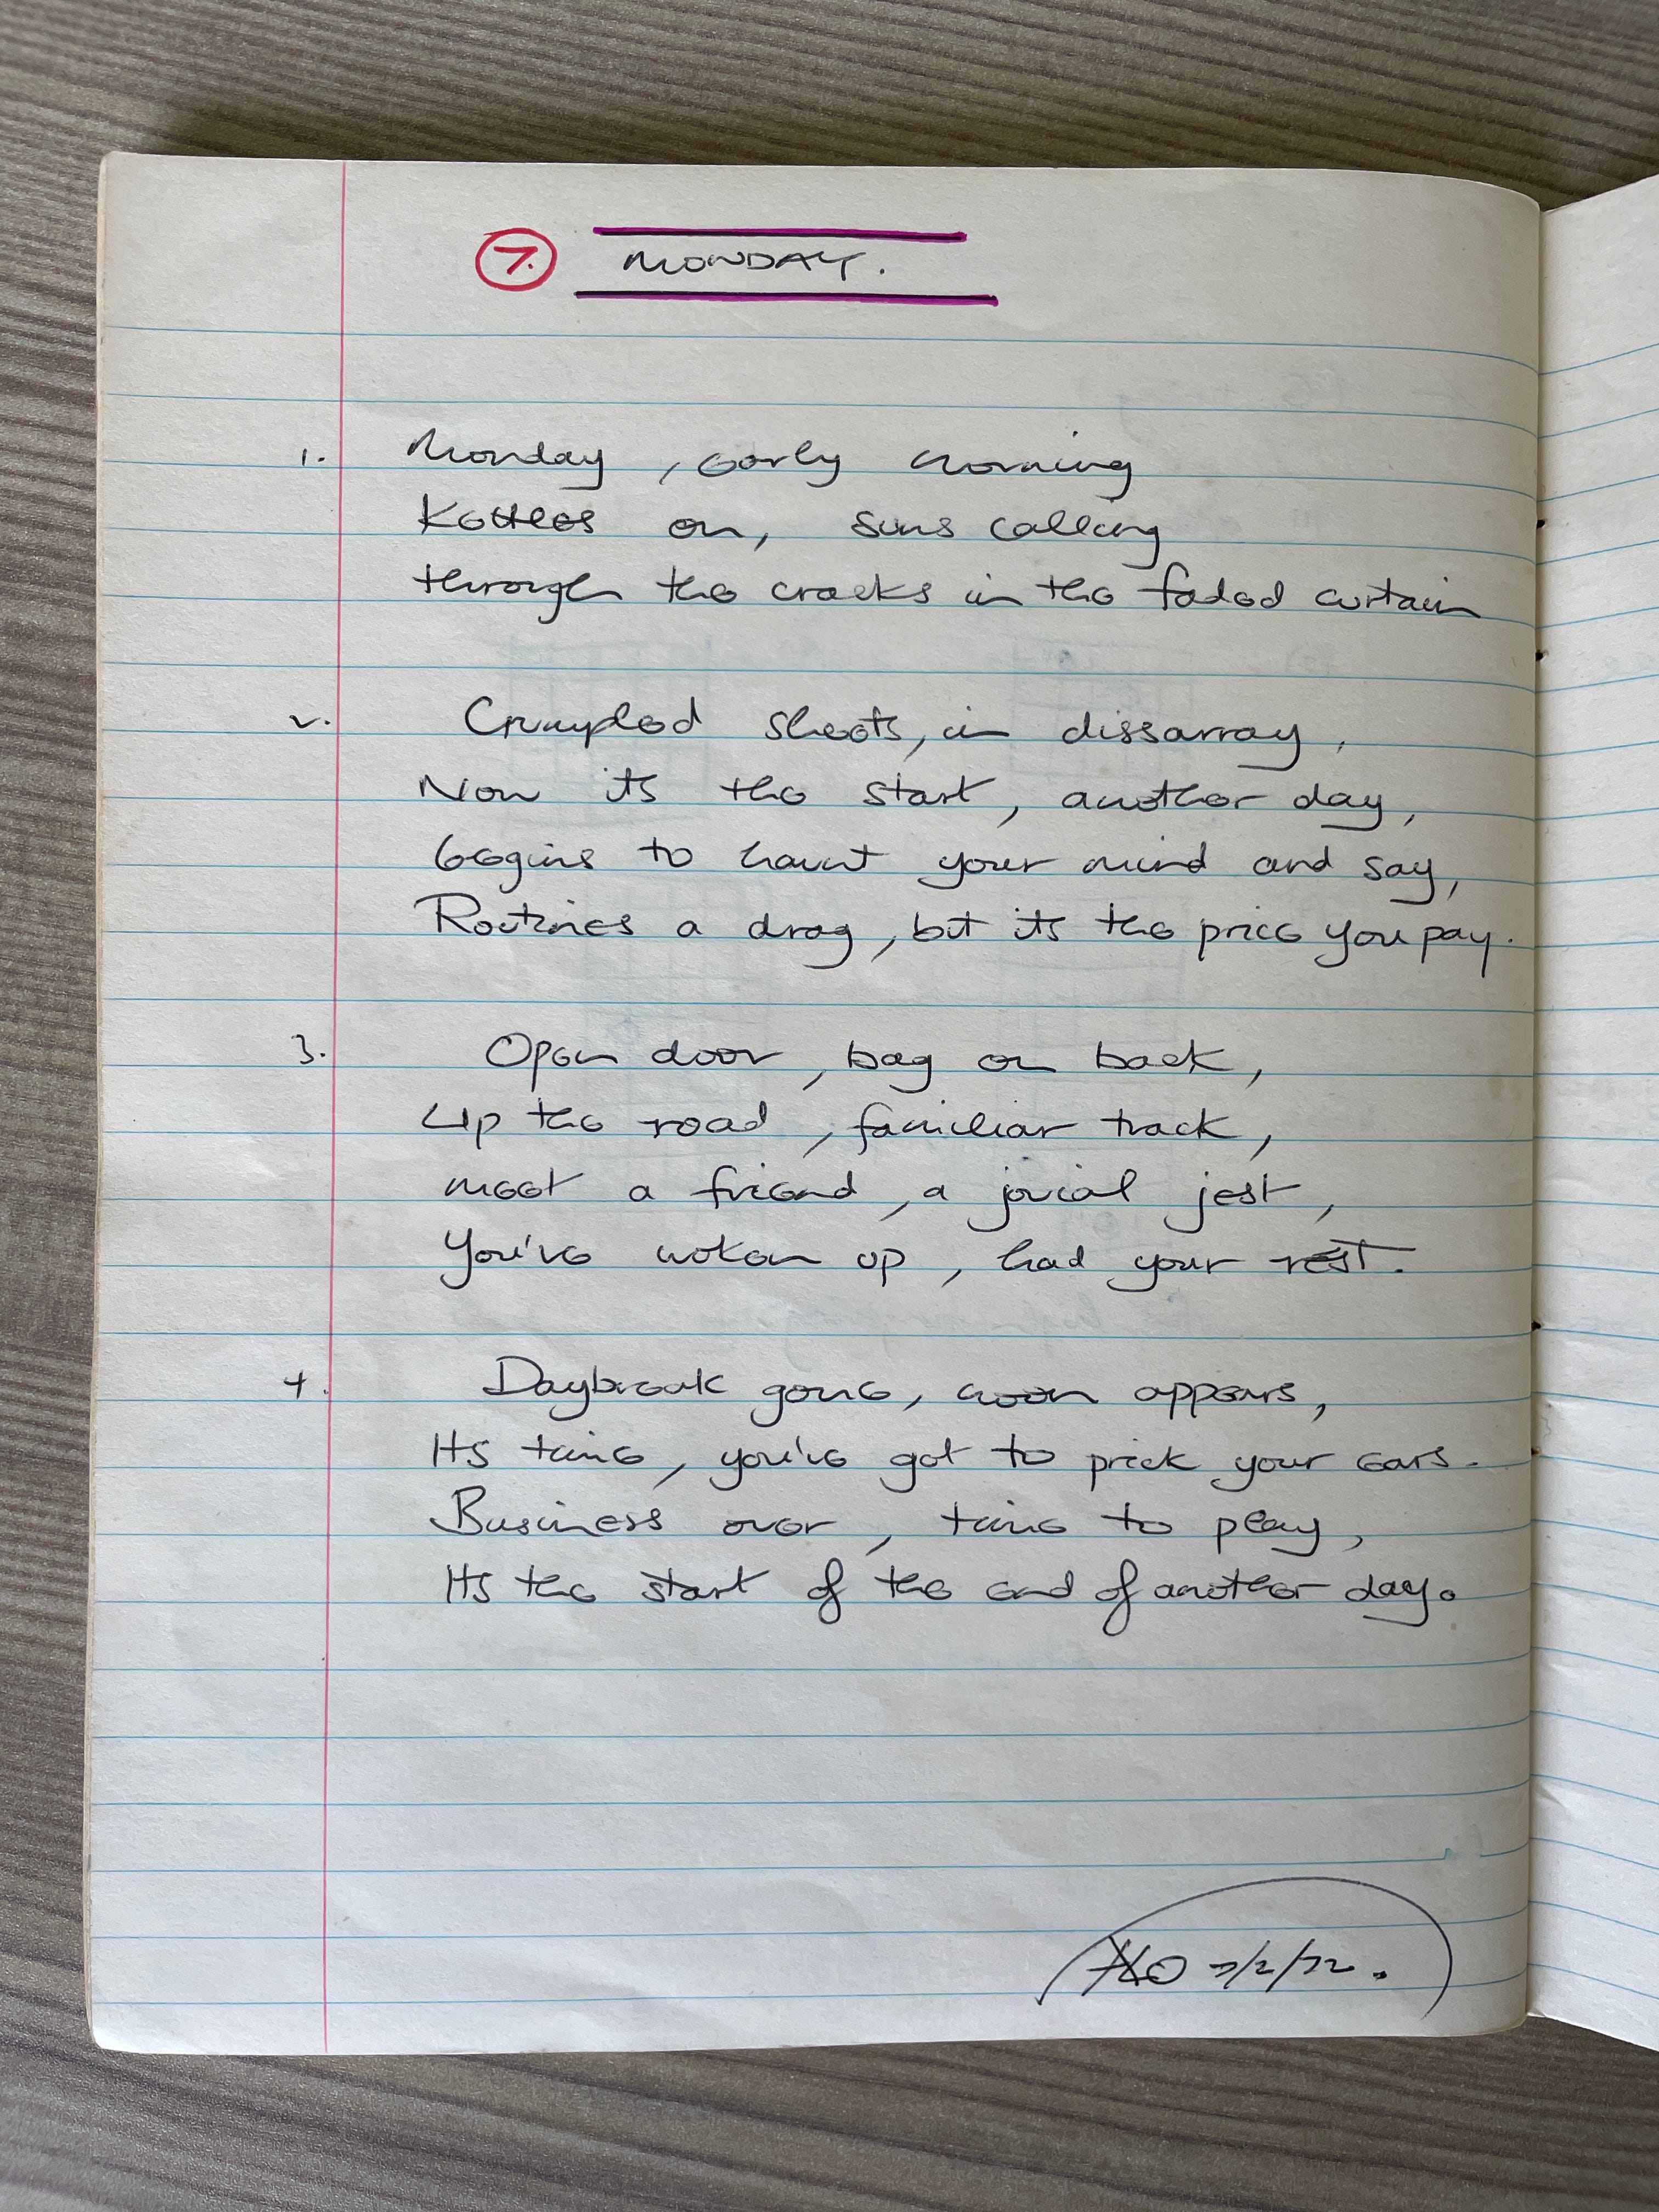 7. MONDAY.
1. Monday, early morning
Kettles on, suns calling
through the cracks in the faded curtain
2. Crumpled sheets, in dissarray,
Now its the start, another day,
begins to haunt your mind and say,
Routines a drag, but its the price you pay.
3. Open door, bag on back,
Up the road, familiar track,
meet a friend, a jovial jest,
You've woken up, had your rest.
4. Daybreak gone, noon appears,
Its time, you've got to prick your ears.
Business over, time to play,
Its the start of the end of another day.
7/2/72.